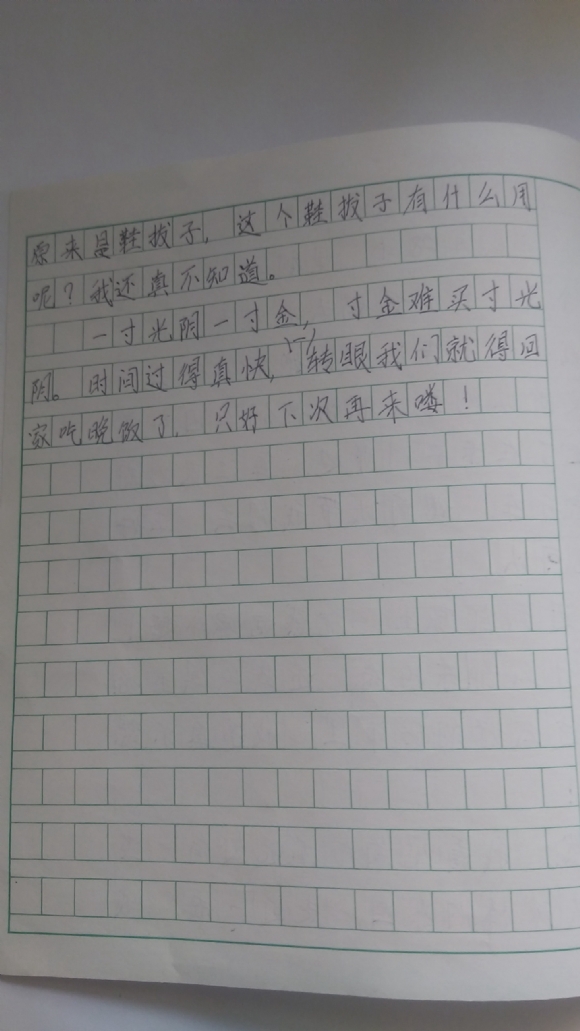 原来是鞋拔子，这个鞋拔子有什么用
呢？我还真不知道。
一寸光阴一寸金，寸金难买寸光
阴。时间过得真快，一转眼我们就得回
家吃晚饭了，只好下次再来喽！